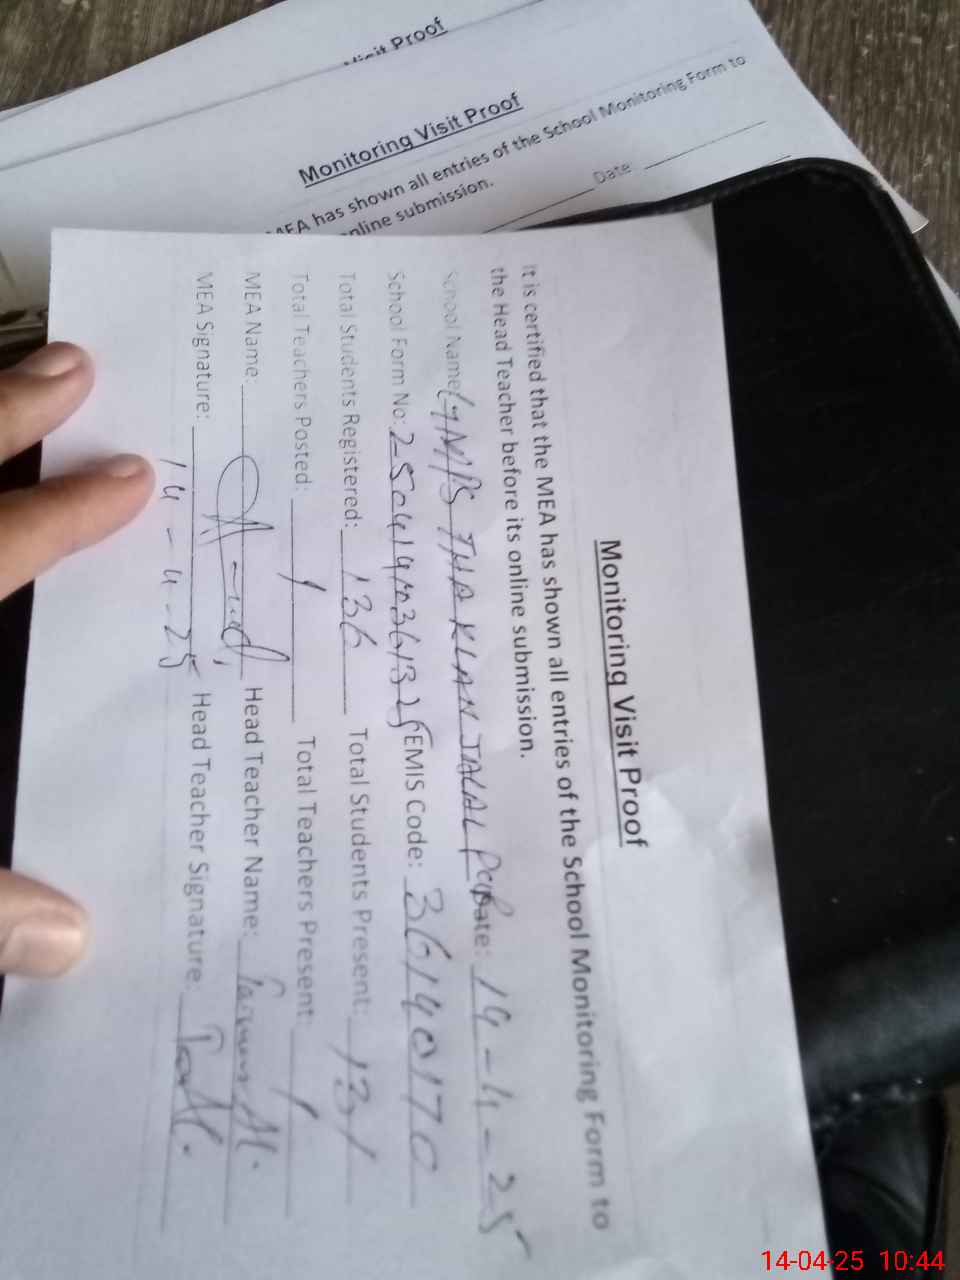 Visit Proof
Monitoring Visit Proof
MEA has shown all entries of the School Monitoring Form to
online submission.
Date
Monitoring Visit Proof
It is certified that the MEA has shown all entries of the School Monitoring Form to
the Head Teacher before its online submission.
School Name: GMPS THAKLAN JALAL Date: 14-4-25
School Form No: EMIS Code: 36140170
Total Students Registered: 136 Total Students Present: 131
Total Teachers Posted: 1 Total Teachers Present: 1
MEA Name: Head Teacher Name:
MEA Signature: Head Teacher Signature:
14-4-25
14-04-25 10:44